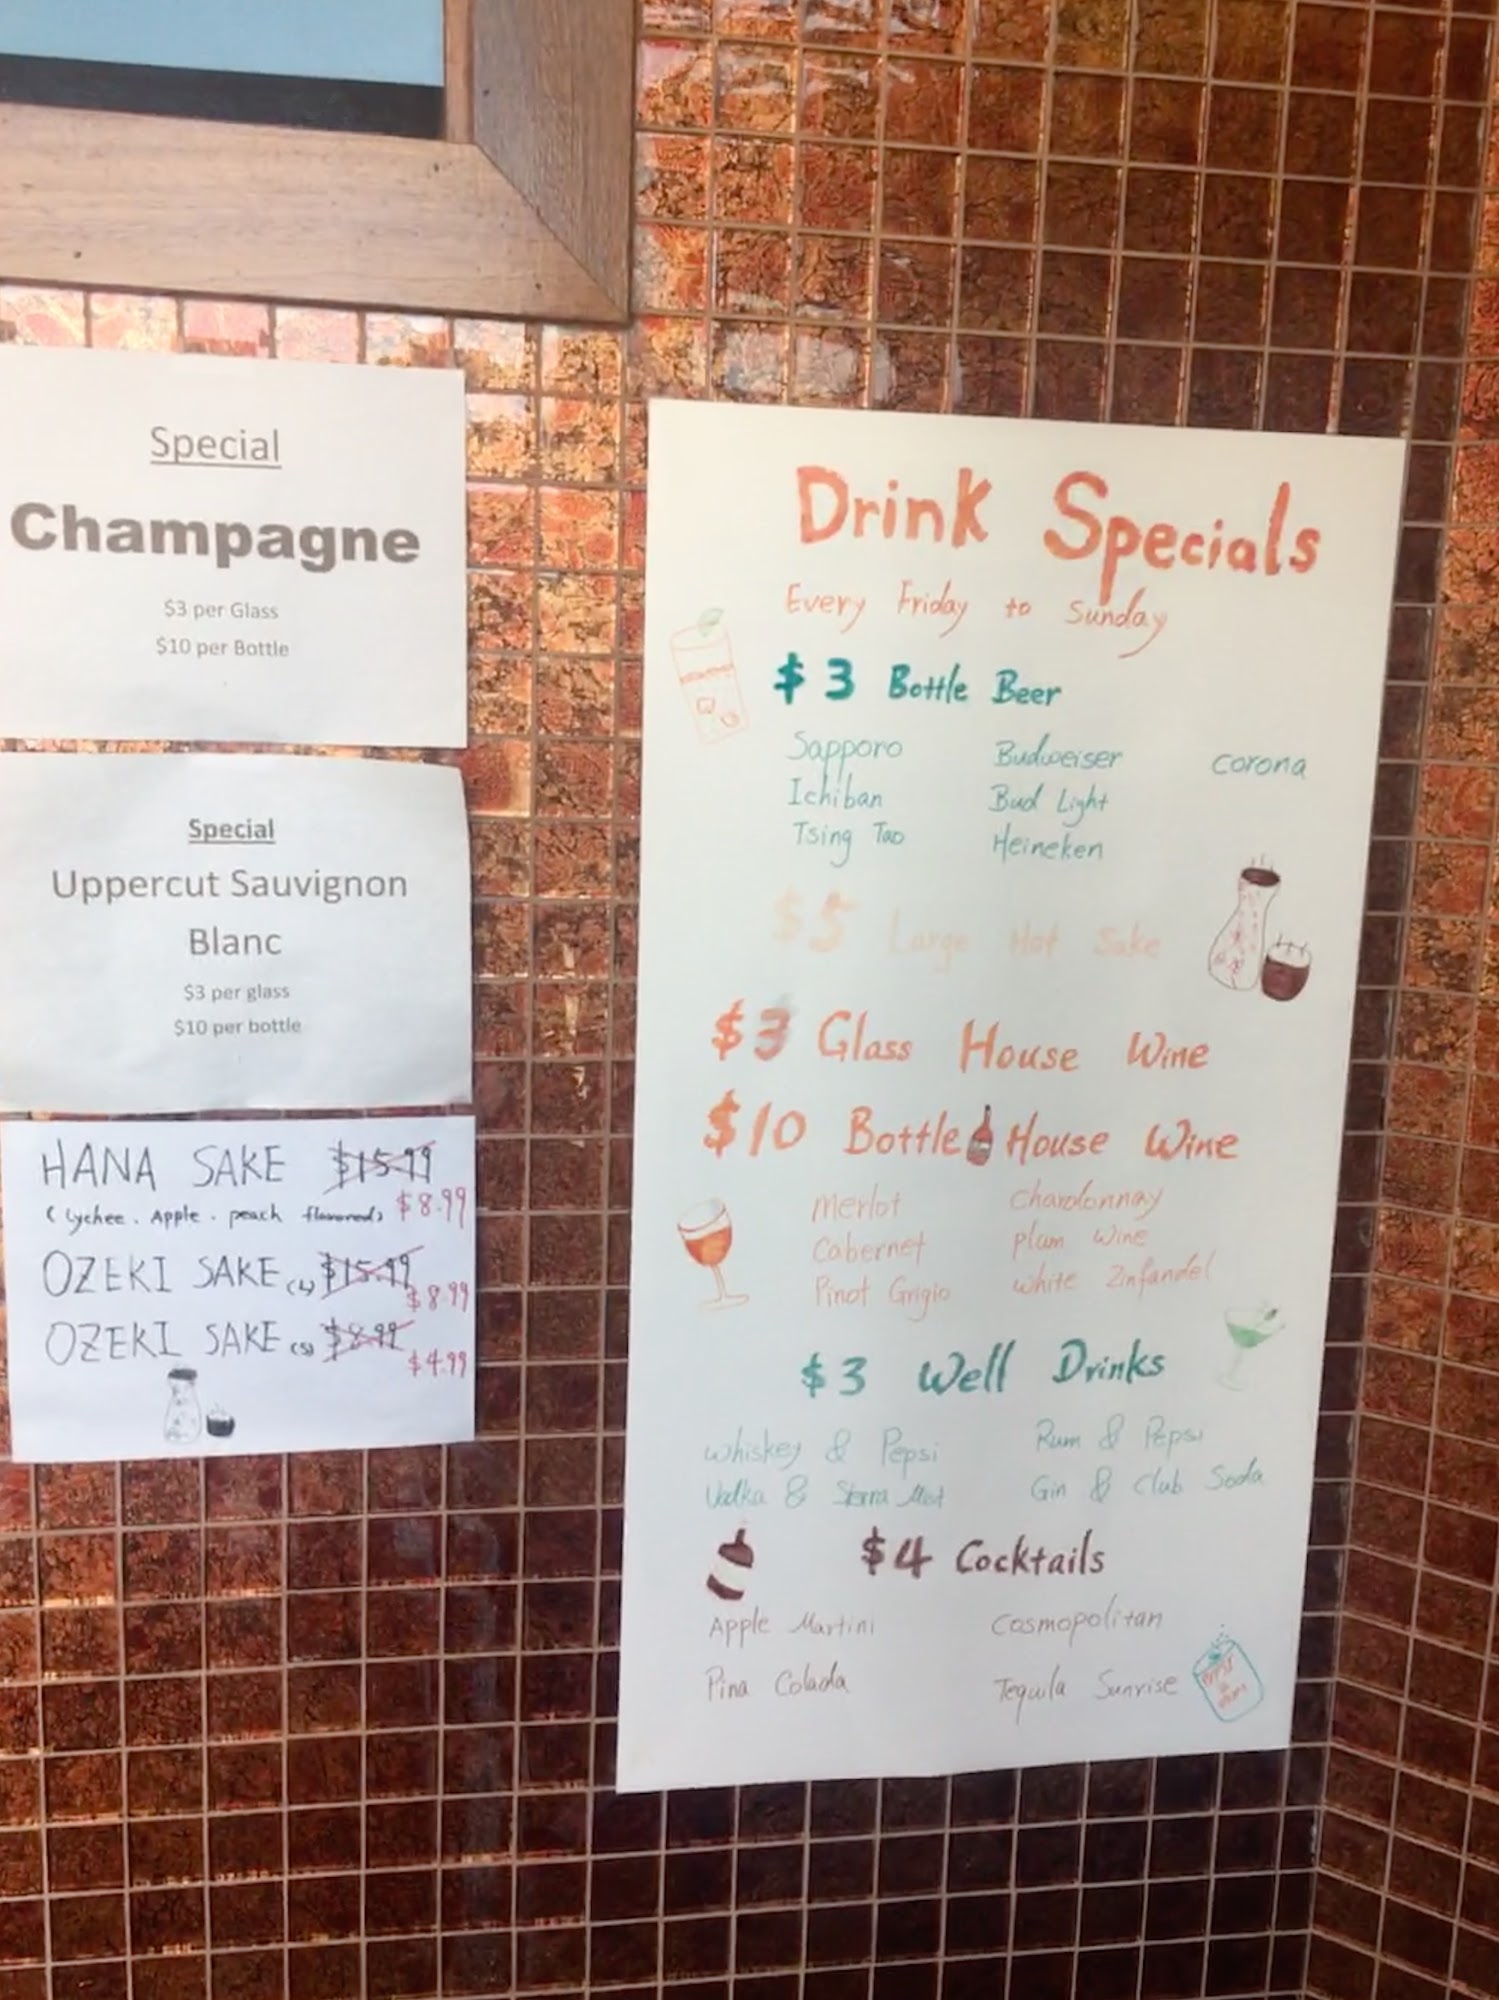 Special
Champagne
$3 per Glass
$10 per Bottle
Special
Uppercut Sauvignon
Blanc
$3 per glass
$10 per bottle
HANA SAKE $15.99
(Lychee. Apple. peach flavored) $8.99
OZEKI SAKE (L) $15.99
$8.99
OZEKI SAKE (S) $8.99
$4.99
Drink Specials
Every Friday to Sunday
$3 Bottle Beer
Sapporo Budweiser corona
Ichiban Bud Light
Tsing Tao Heineken
$5 Large Hot Sake
$3 Glass House Wine
$10 Bottle House Wine
Merlot Chardonnay
Cabernet plum wine
Pinot Grigio white Zinfandel
$3 Well Drinks
whiskey & Pepsi Rum & Pepsi
Vodka & Sierra Mist Gin & Club Soda
$4 Cocktails
Apple Martini Cosmopolitan
Pina Colada Tequila Sunrise